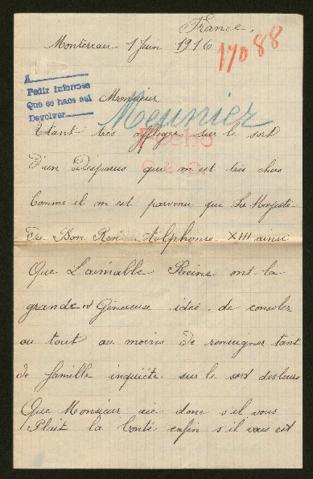 France.
Montereau 1 Juin 1916
17088
A
Pedir Informes
Que se hace así
Devolver
Monsieur
Meunier
Etant très affligée sur le sort
d'un Disparus qui m est très chers
Comme il m est parvenu que Sa Majesté
Tre Bon Roi Alphonse XIII ainsi
Que L'aimable Reine ont la
grande et Génereuse idée de consoler
ou tout au moins de renseigner tant
de famille inquiète sur le sort des leurs
Que Monsieur aie donc s'il vous
Plait la Bonté enfin s'il vous est